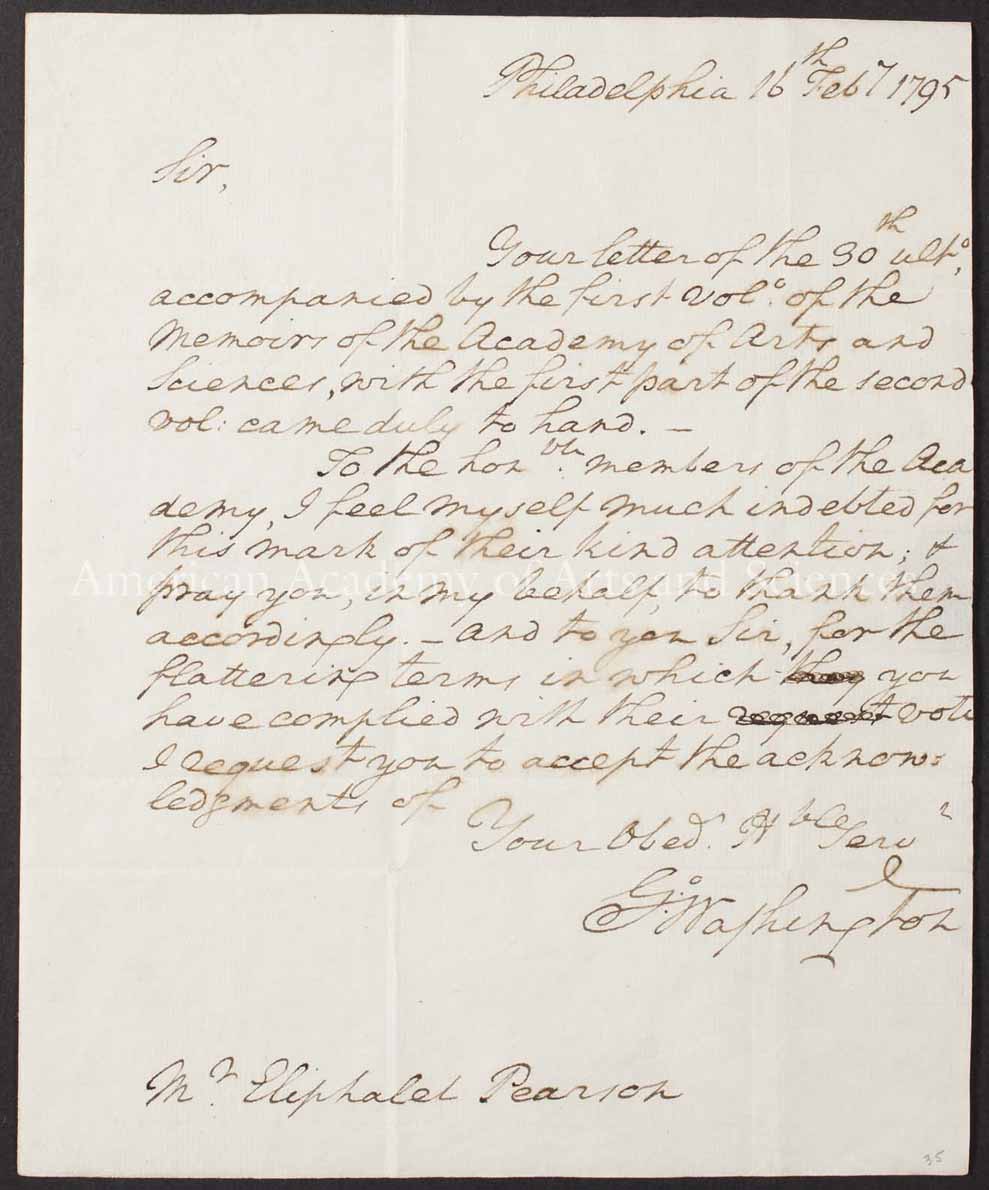 Philadelphia 16th Feby 1795
Sir,
Your letter of the 30th ulto,
accompanied by the first volo. of the
Memoirs of the Academy of Arts and
Sciences, with the first part of the second
vol: came duly to hand. —
To the honble. members of the Aca
demy, I feel myself much indebted for
this mark of their kind attention; &
American Academy of Arts and Sciences
pray you, in my behalf, to thank them
accordingly. — And to you Sir, for the
flattering terms in which they you
have complied with their request vote
I request you to accept the acknow:
ledgments of
Your Obed. Hble Serv
Go: Washington
Mr. Eliphalet Pearson
35